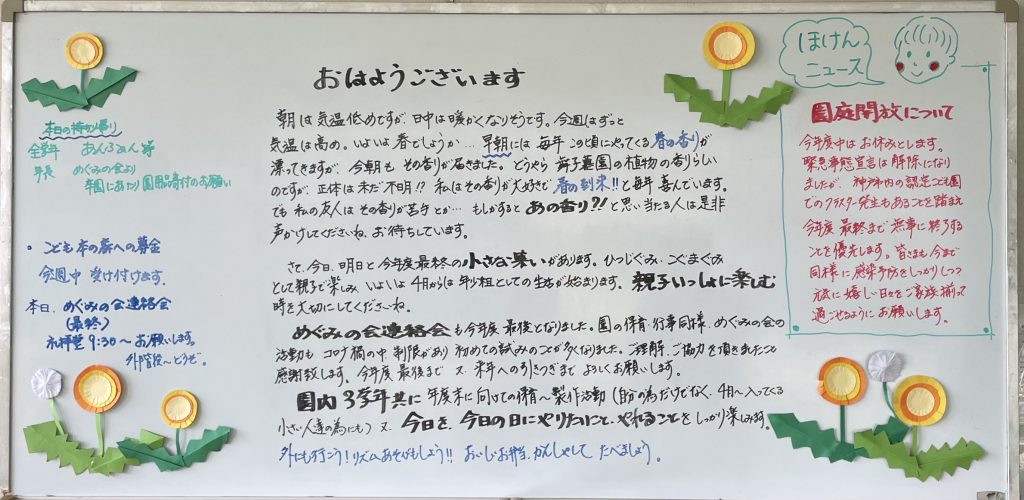 本日の持ち帰り
全学年 あんふぁん等
年長 めぐみの会より
卒園にあたり園服寄付のお願い
・こども本の森への募金
今週中 受け付けます。
本日、めぐみの会連絡会
(最終)
礼拝堂 9:30〜 お願いします。
外階段〜どうぞ。
おはようございます
朝は気温低めですが、日中は暖かくなりそうです。今週はずっと
気温は高め。いよいよ春でしょうか… 早朝には毎年この頃にやってくる春の香りが
漂ってきますが、今朝もその香りが届きました。どうやら舞子墓園の植物の香りらしい
のですが、正体は未だ不明!? 私はその香りが大好きで春の到来!!と毎年喜んでいます。
でも私の友人はその香りが苦手とか… もしかするとあの香り?!と思い当たる人は是非
声かけしてくださいね。お待ちしています。
さて、今日、明日と今年度最終の小さな集いがあります。ひつじぐみ、こぐまぐみ
として親子で楽しみ、いよいよ4月からは年少組としての生活が始まります。親子いっしょに楽しむ
時を大切にしてくださいね。
めぐみの会連絡会も今年度最後となりました。園の保育・行事同様、めぐみの会の
活動もコロナ禍の中 制限があり初めての試みのことが多くなりました。ご理解、ご協力を頂きましたこと
感謝致します。今年度最後まで 又、来年への引きつぎまでよろしくお願いします。
園内 3学年共に 年度末に向けての保育〜製作活動(自分の為だけでなく、4月〜入ってくる
小さい人達の為にも)又、今日を、今日の日にやりたいこと、やれることをしっかり楽しみます。
外にも行こう!リズムあそびもしよう!! おいしいお弁当、かんしゃして たべましょう。
ほけん
ニュース
園庭開放について
今年度中はお休みとします。
緊急事態宣言は解除になり
ましたが、神戸市内の認定こども園
でのクラスター発生もあることを踏まえ
今年度最終まで無事に終了する
ことを優先します。皆さまも今まで
同様に感染予防をしっかりしつつ
元気に嬉しい日々をご家族揃って
過ごせるようにお願いします。